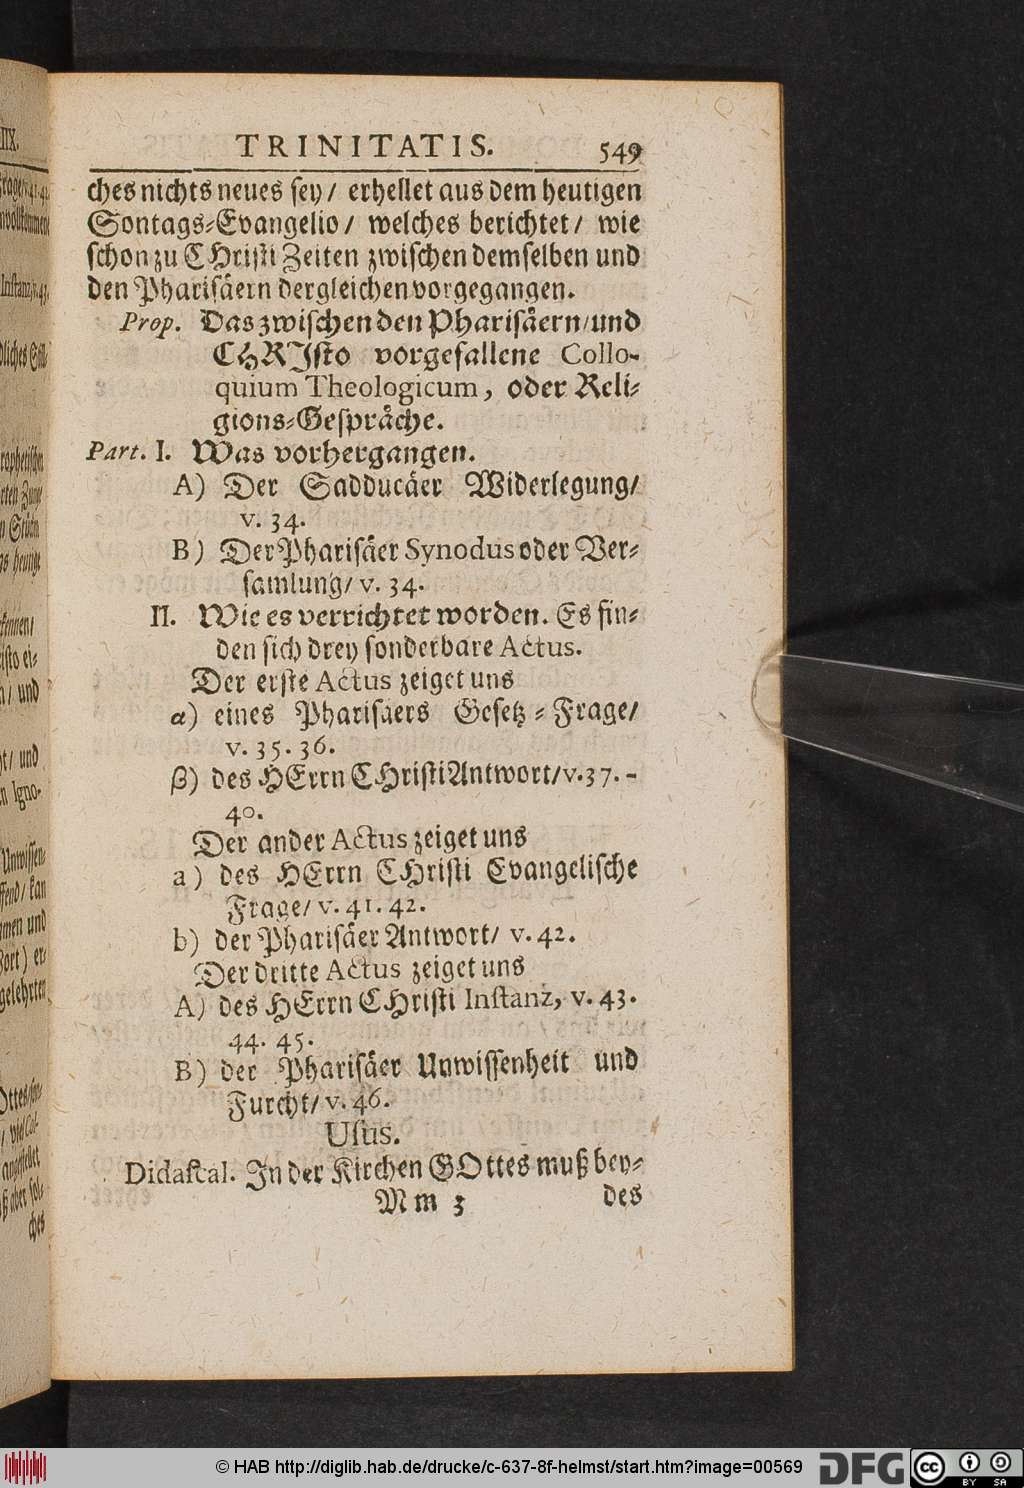 TRINITATIS. 549
ches nichts neues sey/ erhellet aus dem heutigen
Sontags-Evangelio/ welches berichtet/ wie
schon zu CHristi Zeiten zwischen demselben und
den Pharisäern dergleichen vorgegangen.
Prop. Das zwischen den Pharisäern/und
CHRJsto vorgefallene Collo-
quium Theologicum, oder Reli-
gions-Gespräche.
Part. I. Was vorhergangen.
A) Der Sadducäer Widerlegung/
v. 34.
B) Der Pharisäer Synodus oder Ver-
samlung/ v. 34.
II. Wie es verrichtet worden. Es fin-
den sich drey sonderbare Actus.
Der erste Actus zeiget uns
α) eines Pharisäers Gesetz-Frage/
v. 35. 36.
β) des HErrn CHristi Antwort/ v. 37. -
40.
Der ander Actus zeiget uns
a) des HErrn CHristi Evangelische
Frage/ v. 41. 42.
b) der Pharisäer Antwort/ v. 42.
Der dritte Actus zeiget uns
A) des HErrn CHristi Instanz, v. 43.
44. 45.
B) der Pharisäer Unwissenheit und
Furcht/ v. 46.
Usus.
Didascal. Jn der Kirchen GOttes muß bey-
Mm 3 des
© HAB http://diglib.hab.de/drucke/c-637-8f-helmst/start.htm?image=00569
DFG
cc BY SA